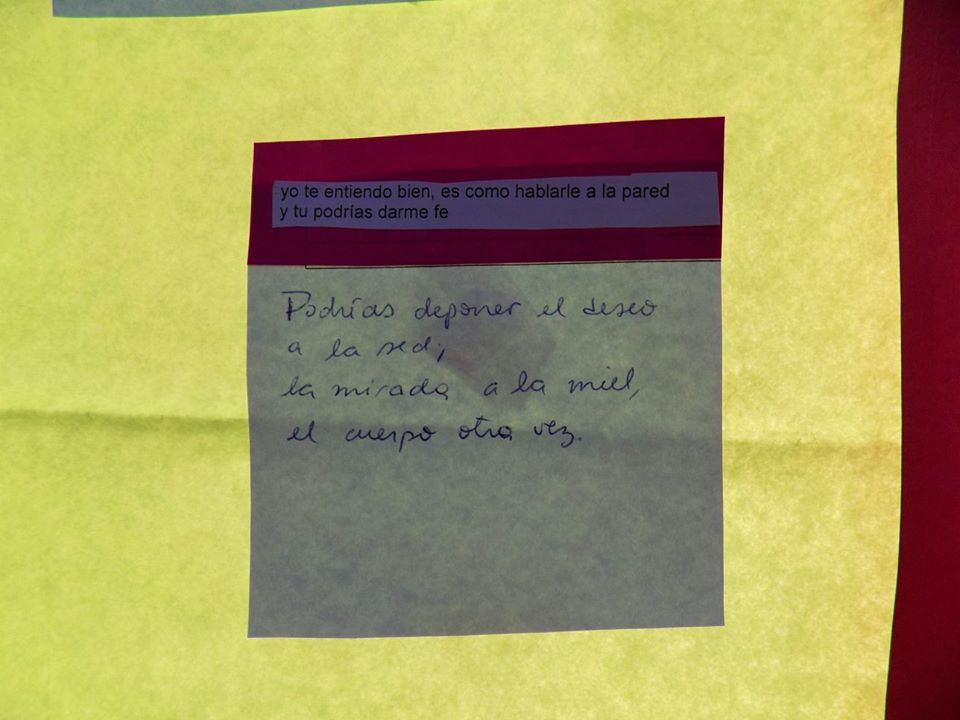 yo te entiendo bien, es como hablarle a la pared
y tu podrías darme fe
Podrías deponer el deseo
a la sed;
la mirada a la miel,
el cuerpo otra vez.